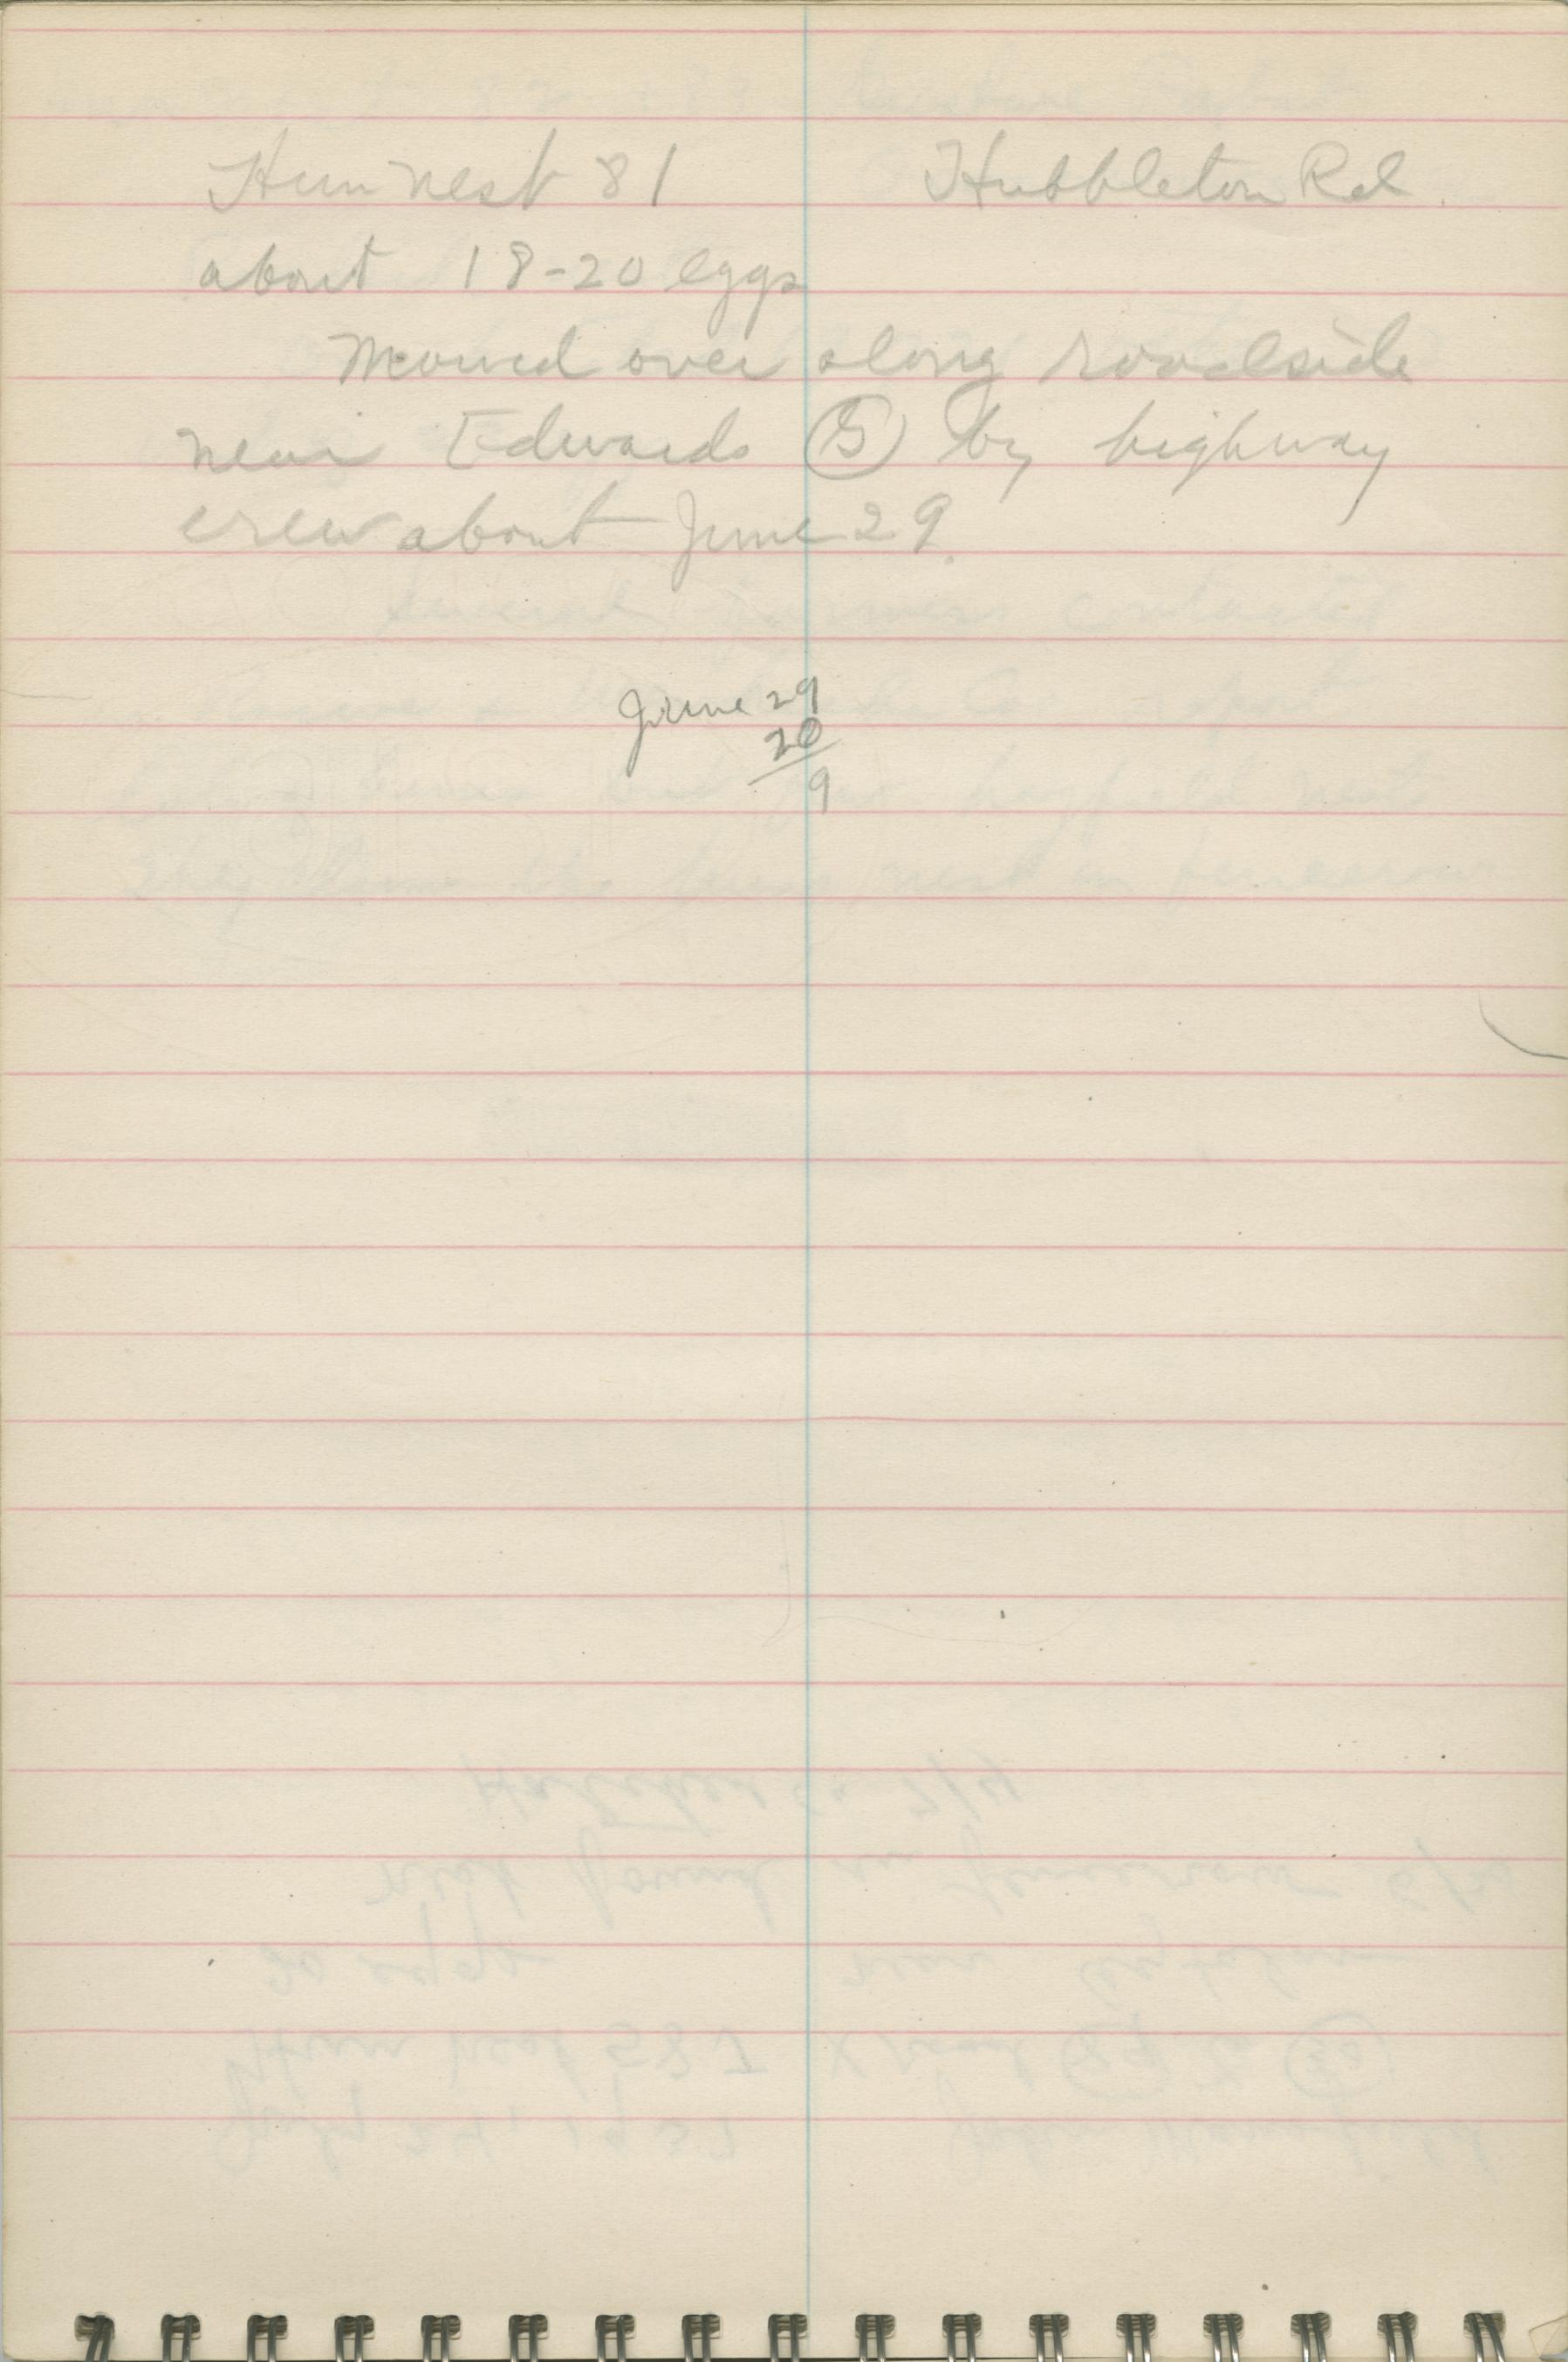 Hun nest 81 Hubbleton Rd.
about 18-20 eggs
Mowed over along roadside
near Edwards (5) by highway
crew about June 29.
June 29
20
9